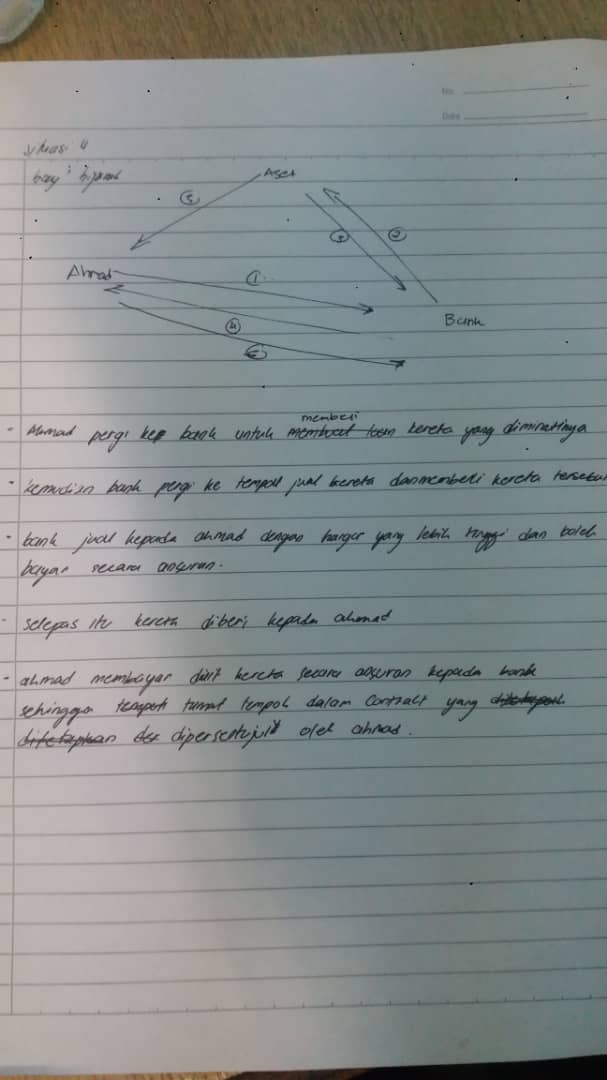 No.
Date
situasi 4
bay' bithaman
Aset
5
3
2
Ahmad
1
Bank
4
6
membeli
- Ahmad pergi ke bank untuk membuat loan kereta yang diminatinya
- kemudian bank pergi ke tempat jual kereta dan membeli kereta tersebut
- bank jual kepada ahmad dengan harga yang lebih tinggi dan boleh
bayar secara ansuran.
- selepas itu kereta diberi kepada ahmad
- ahmad membayar duit kereta secara ansuran kepada bank
sehingga tamat tempoh dalam contract yang
dipersetujui oleh ahmad.